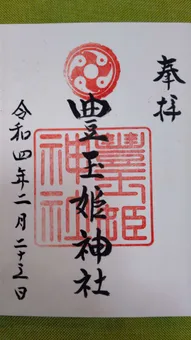 奉拝
豊玉姫神社
豊玉姫
神社
令和四年二月二十三日